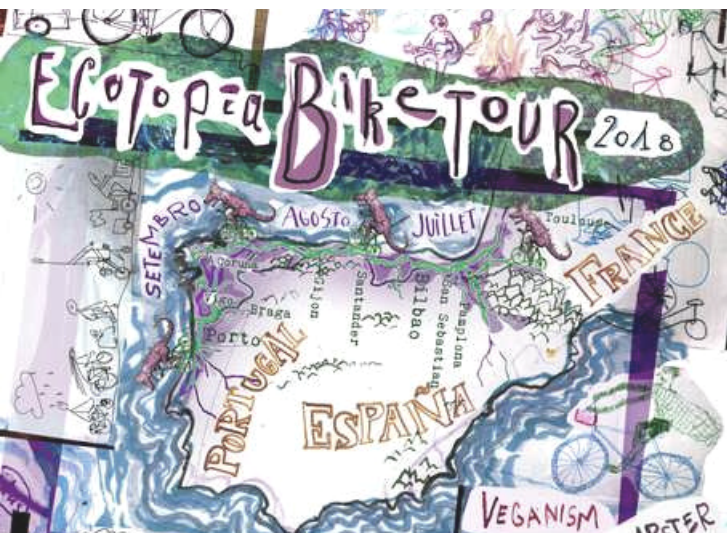 ECOTOPIA BIKETOUR 2018
SETEMBRO
AGOSTO
JUILLET
Toulouse
FRANCE
A Coruna
Vigo
Braga
Porto
Gijon
Santander
Bilbao
San Sebastian
Pamplona
PORTUGAL
ESPAÑA
VEGANISM